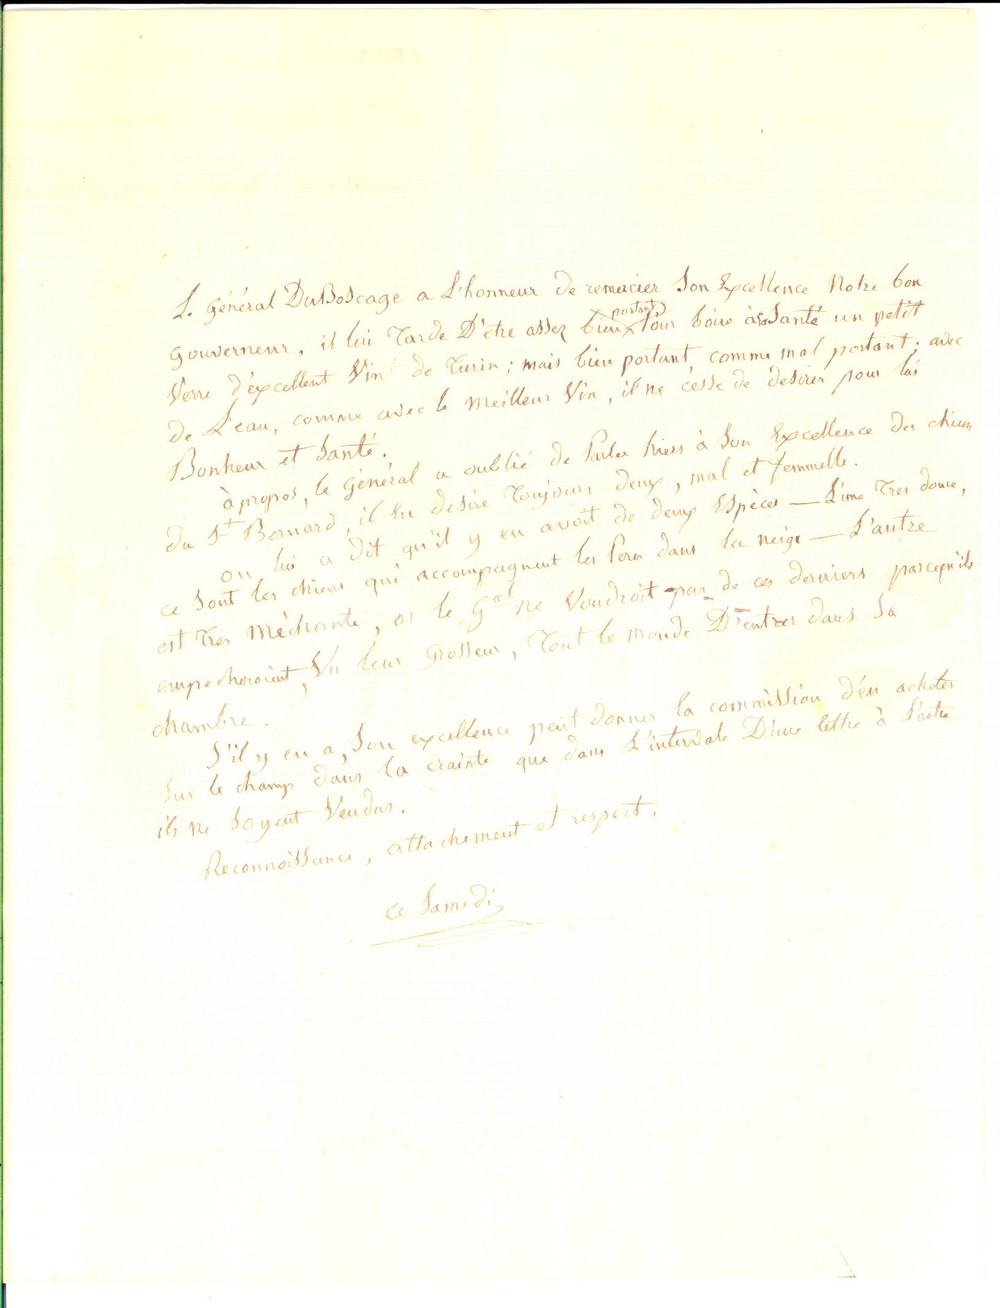 L. Général DuBoscage a L'honneur de remercier Son Excellence Notre bon
gouverneur, il lui Tarde D'être assez bien portant Pour boire à sa Santé un petit
Verre d'éxcellent Vin de Turin; mais bien portant comme mal portant; avec
de L'eau, comme avec le meilleur Vin, il ne césse de desirer pour lui
Bonheur et Santé.
à propos, le général a oublié de Parler hiers à Son Excellence des chiens
du St Bernard, il En desire Toujours deux, mal et femmelle.
on lui a dit qu'il y en avoit de deux Espèces — L'une Tres douce,
ce Sont les chiens qui accompagnent les Peres dans la neige — L'autre
est Tres Méchante, or le Gal ne Voudroit pas de ces derniers parcequ'ils
empecheroient, Vu leur Grosseur, Tout le monde D'entrer dans Sa
chambre.
S'il y en a, Son excellence peut donner la commission d'en acheter
Sur le champ dans la crainte que dans L'intervale D'une lettre à L'autre
ils ne Soyent Vendus.
Reconnoissance, attachement et respect.
ce Samedi